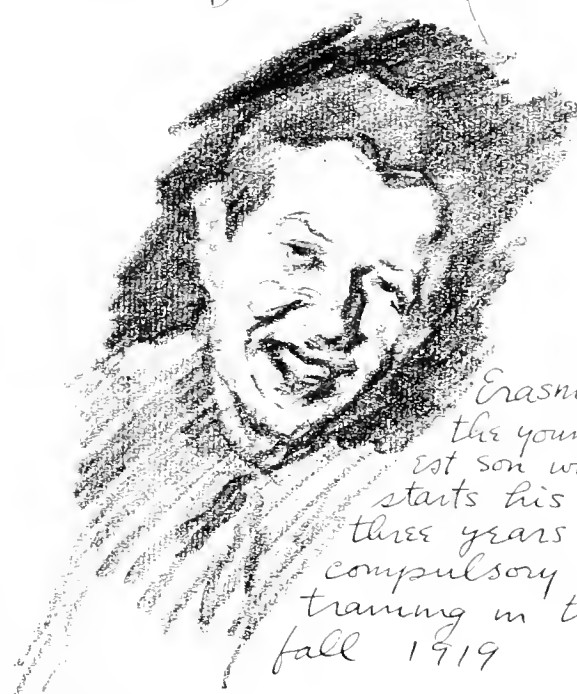 Erasm
the youn
est son w
starts his
three years
compulsory
training in t
fall 1919